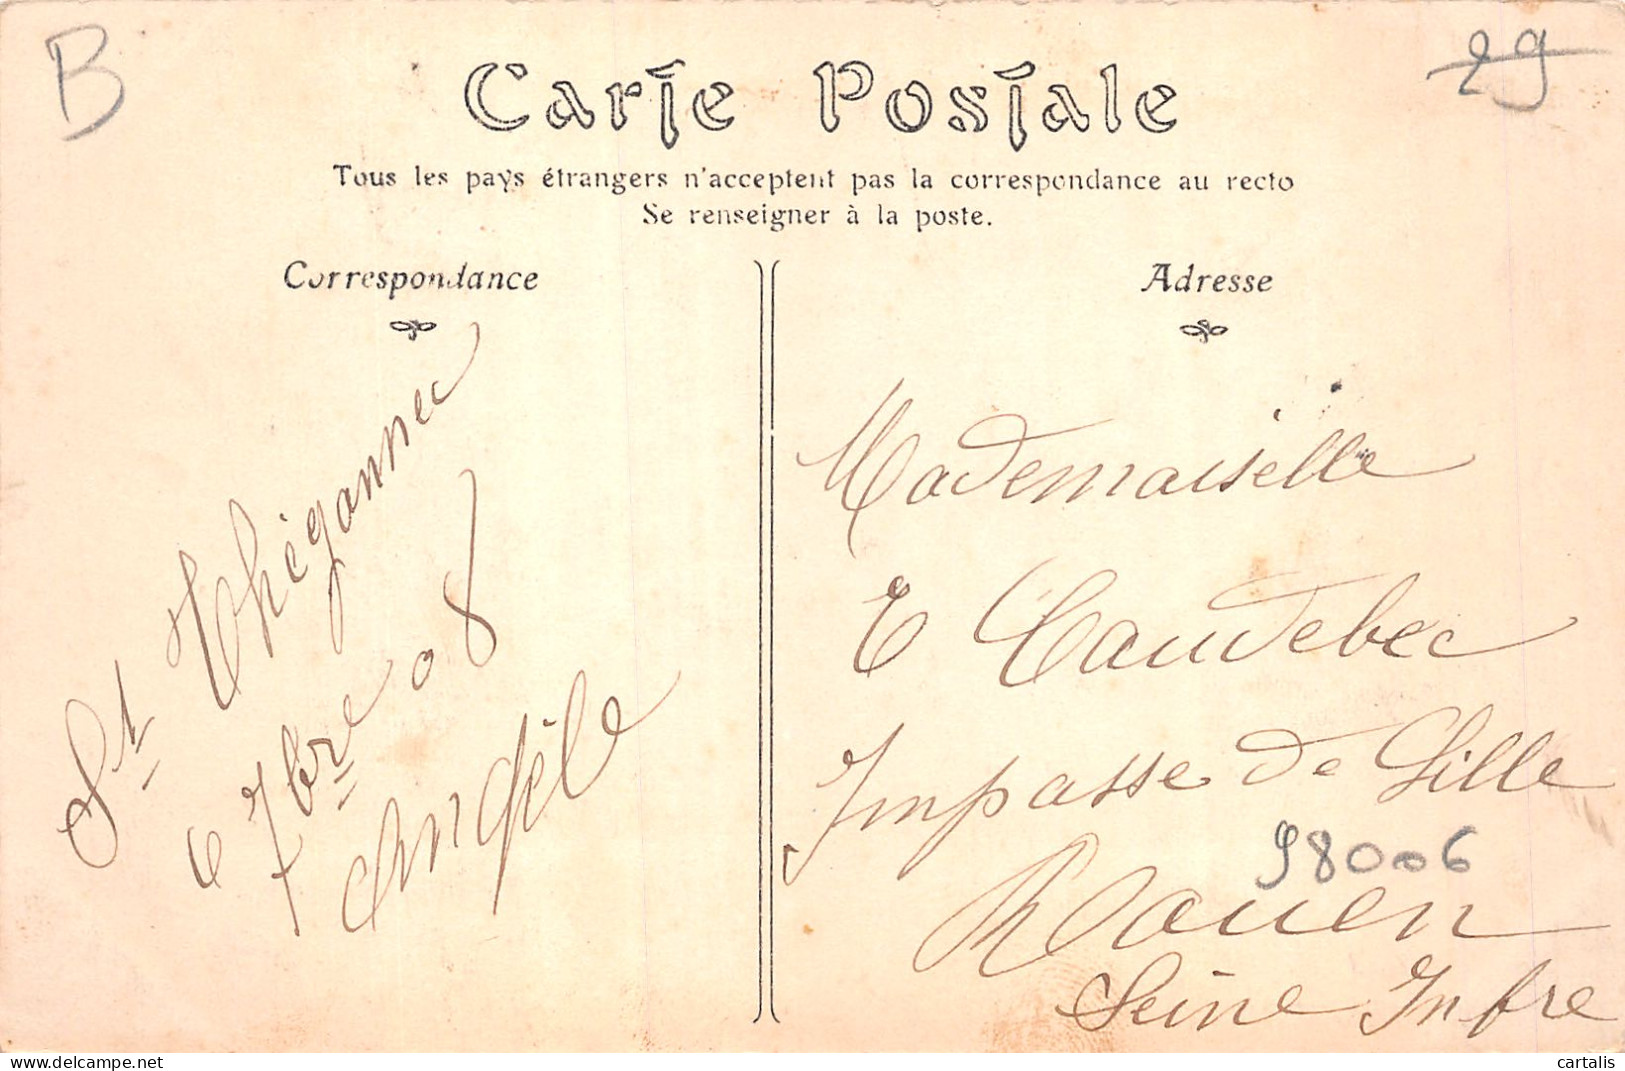 B
29
Carte Postale
Tous les pays étrangers n'acceptent pas la correspondance au recto
Se renseigner à la poste.
Correspondance
St Thégonnec
6 7bre 08
Angèle
Adresse
Mademoiselle
E Caudebec
Impasse de Lille
98006
Rouen
Seine Infre
cartalis